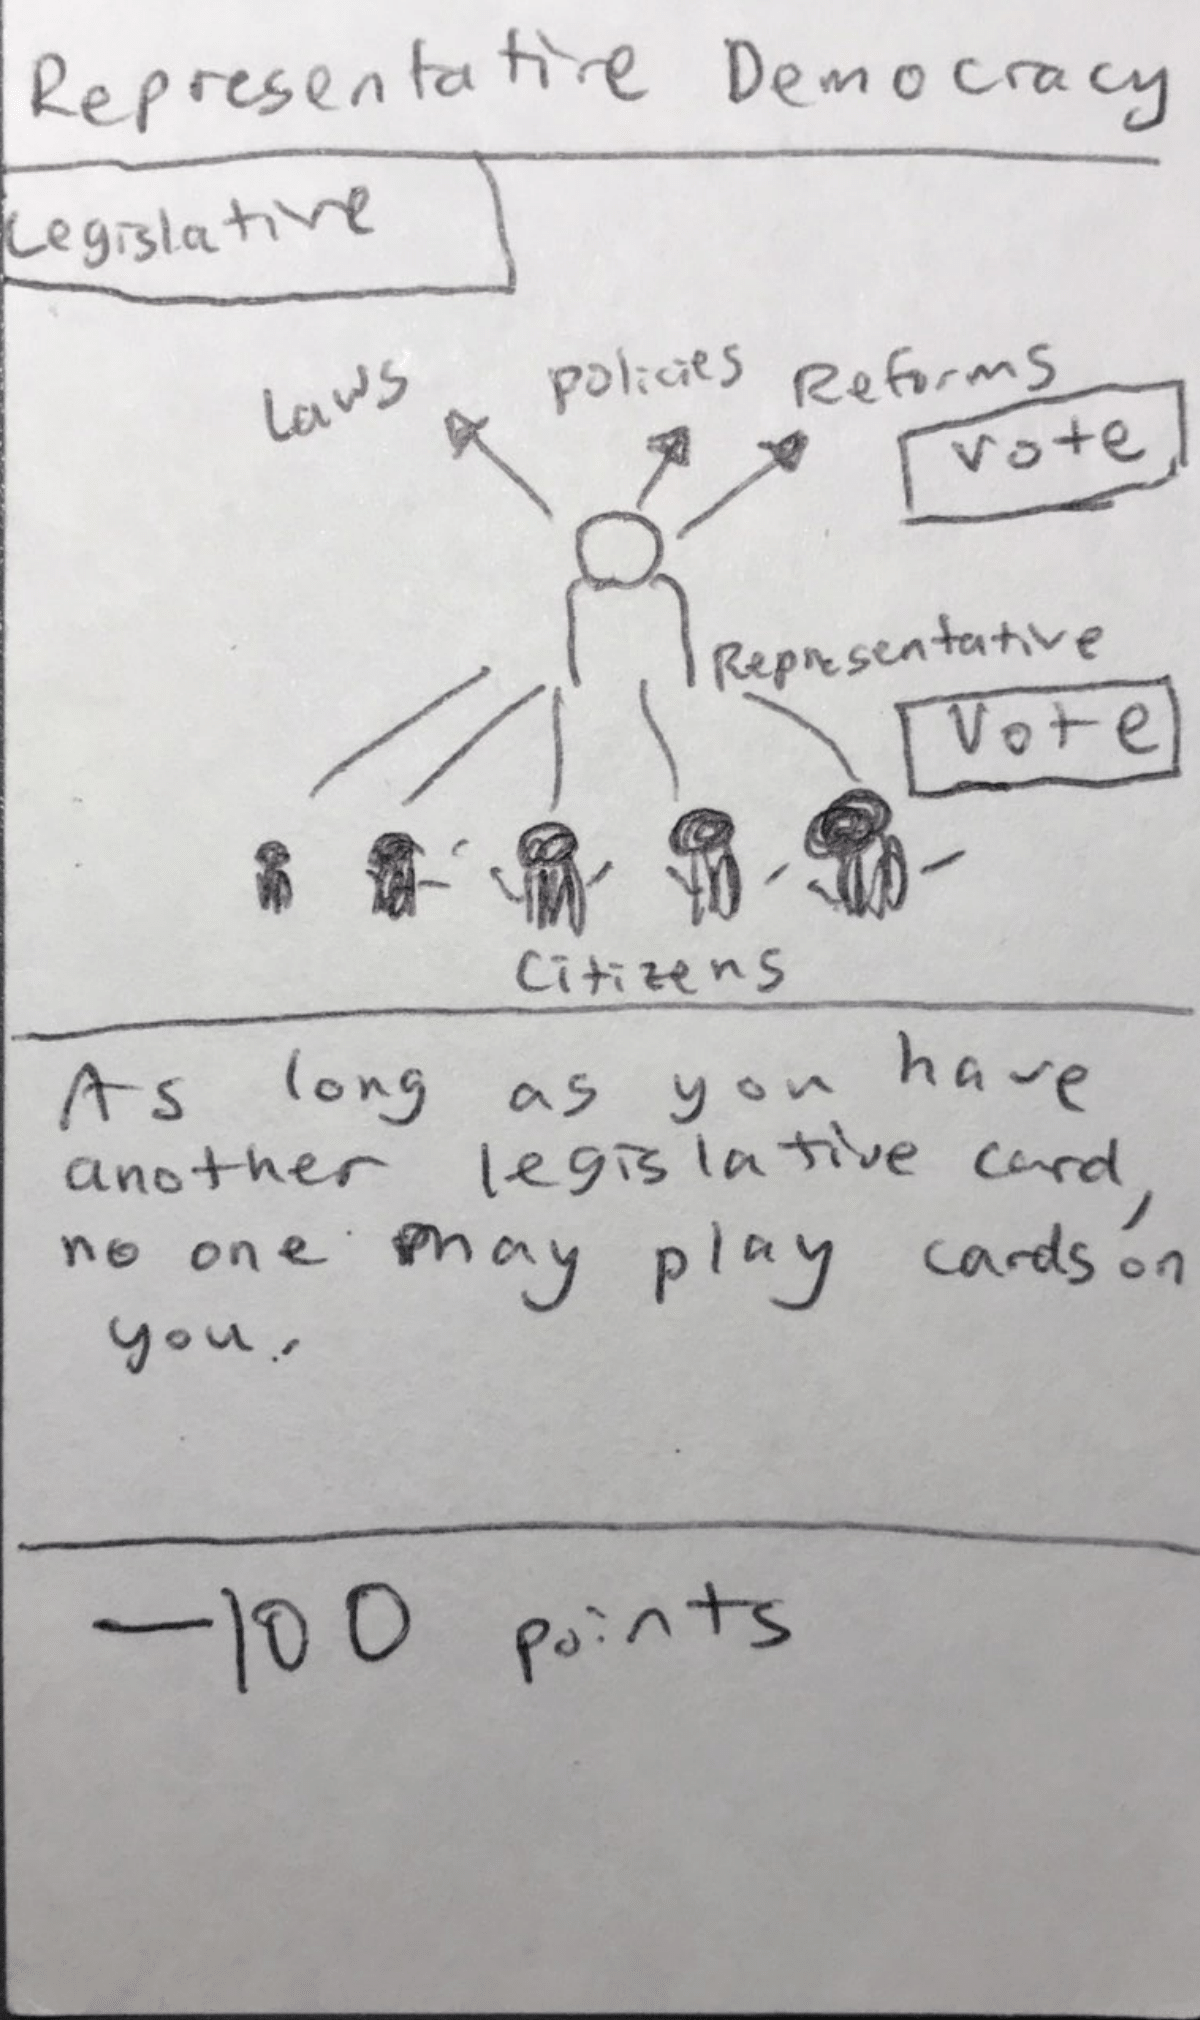 Representative Democracy
Legislative
Laws policies Reforms
vote
Representative
Vote
Citizens
As long as you have
another legislative card,
no one may play cards on
you.
-100 points